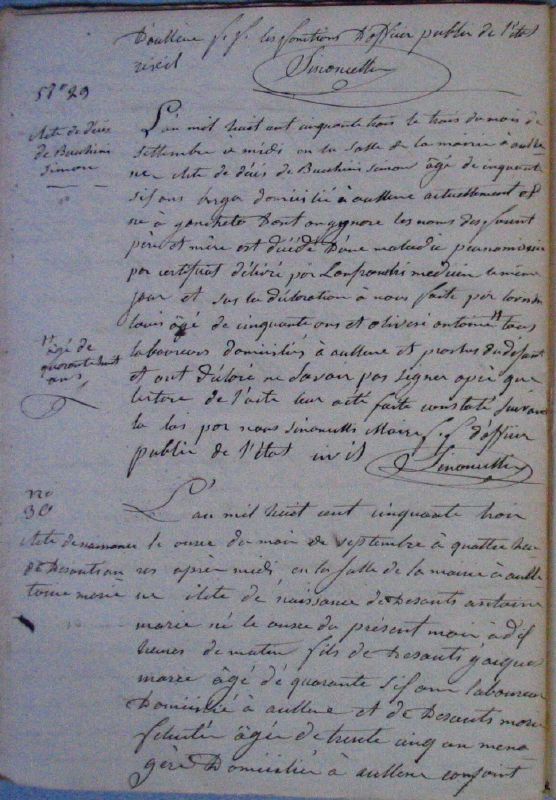 D'aullene f. f. les fonctions D'officier public de l'état
civil
Simonetti
N° 29
Acte de décès
de Bucchini
Simon
L'an mil huit cent cinquante trois le trois du mois de
settembre à midi en la salle de la mairie à aulle
ne Acte de décès de Bucchini Simon âgé de cinquante
six ans domicilié à aullene actuellement et
né à Dont on ignore les noms des
père et mère est décédé D'une maladie
por certificat délivré por Lanfranchi medecin le meme
jour et sur la déclaration à nous faite por
louis âgé de cinquante ans et oliveri antoine tous
laboureurs domiciliés à aullene et proches du défunt
et ont déclaré ne savoir pas signer aprè que
lecture de l'acte leur a été faite constaté suivant
la loi por nous Simonetti Maire f. f. d'officier
public de l'état civil Simonetti
âgé de
quarante huit
ans
n°
30
Acte de naissance
de Desanti an
toine marie
L'an mil huit cent cinquante trois
le onze du mois de septembre à quattre heu
res après midi en la salle de la mairie à aulle
ne Acte de naissance de Desanti antoine
marie né le onze du présent mois à dix
heures de matin fils de Desanti
marie âgé de quarante six ans laboureur
Domicilié à aullene et de Desanti marie
félicité âgée de trente cinq ans mena
gère Domicilié à aullene conjoint